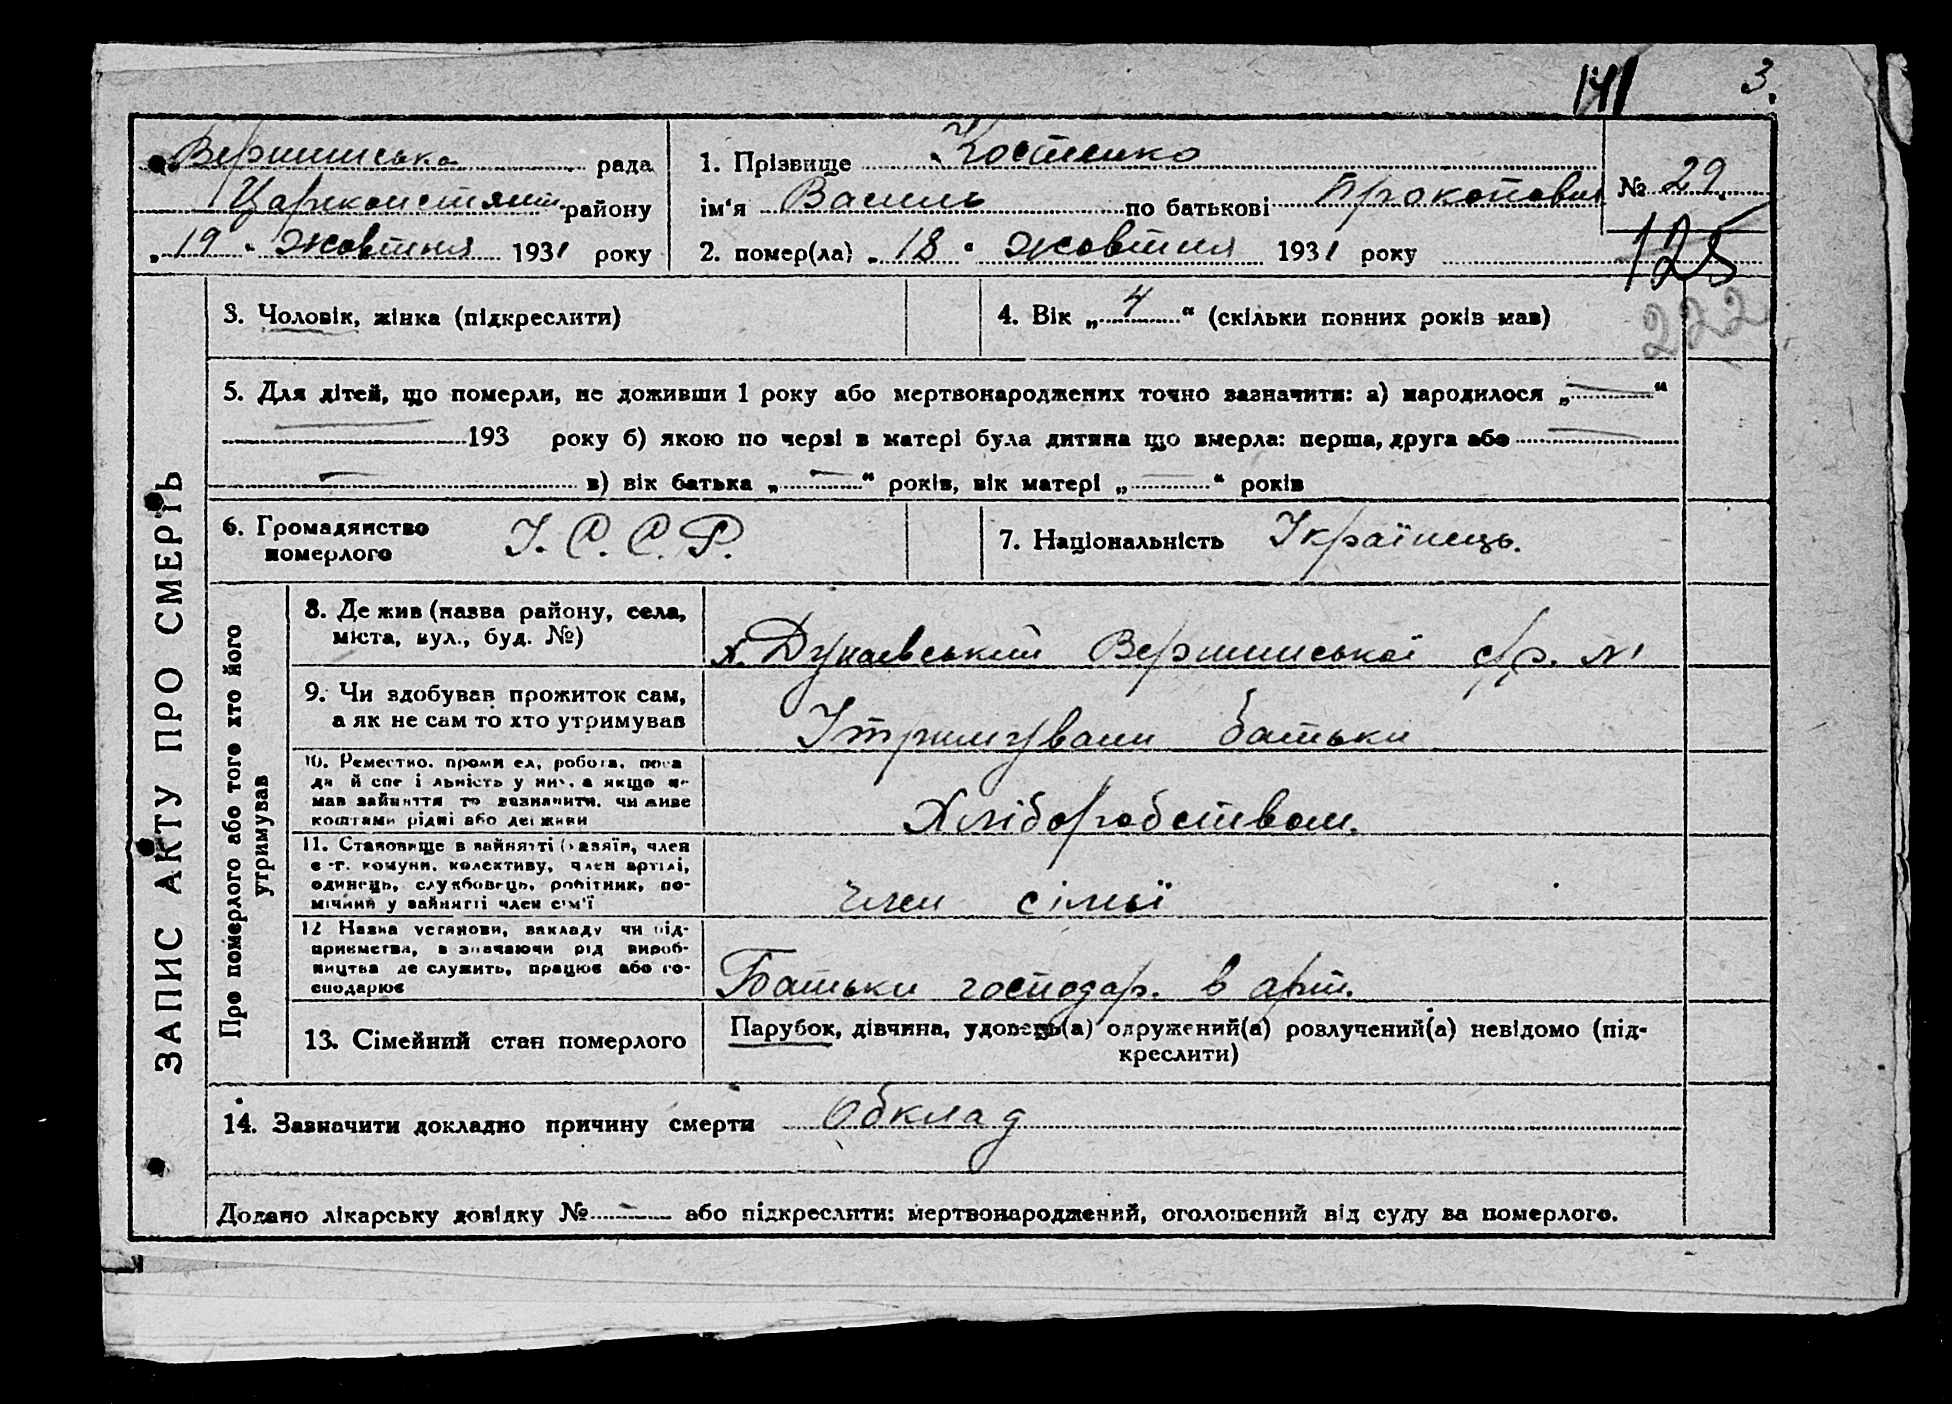 141 3.
Вершинська рада
Царконстянт. району
„19“ жовтня 1931 року
1. Прізвище Костенко
ім'я Василь по батькові Прокопович
2. помер(ла) „18“ жовтня 1931 року
№ 29.
125
222
ЗАПИС АКТУ ПРО СМЕРТЬ
3. Чоловік, жінка (підкреслити)
4. Вік „4“ (скільки повних років мав)
5. Для дітей, що померли, не доживши 1 року або мертвонароджених точно зазначити: а) народилося „—“
— 193 року б) якою по черзі в матері була дитина що вмерла: перша, друга або —
— в) вік батька „—“ років, вік матері „—“ років
6. Громадянство
померлого
У.С.С.Р.
7. Національність Українець.
Про померлого або того хто його
утримував
8. Де жив (назва району, села,
міста, вул., буд. №)
х. Дунаевський Вершинської с/р.
9. Чи здобував прожиток сам,
а як не сам то хто утримував
Утримували батьки
10. Ремество, промисел, робота, поса
да й спеціальність у них, а якщо не
мав зайняття то зазначити, чи живе
коштами рідні або держави
Хліборобством.
11. Становище в зайнятті (хазяїн, член
с.-г. комуни, колективу, член артілі,
одинець, службовець, робітник, по-
мічний у зайнятті член сім'ї
член сімьї
12 Назва установи, закладу чи під-
приємства, зазначаючи рід вироб-
ництва де служить, працює або го-
сподарює
Батьки господар. в арт.
13. Сімейний стан померлого
Парубок, дівчина, удовець(а) одружений(а) розлучений(а) невідомо (під-
креслити)
14. Зазначити докладно причину смерти Обклад
Додано лікарську довідку № — або підкреслити: мертвонароджений, оголошений від суду за померлого.